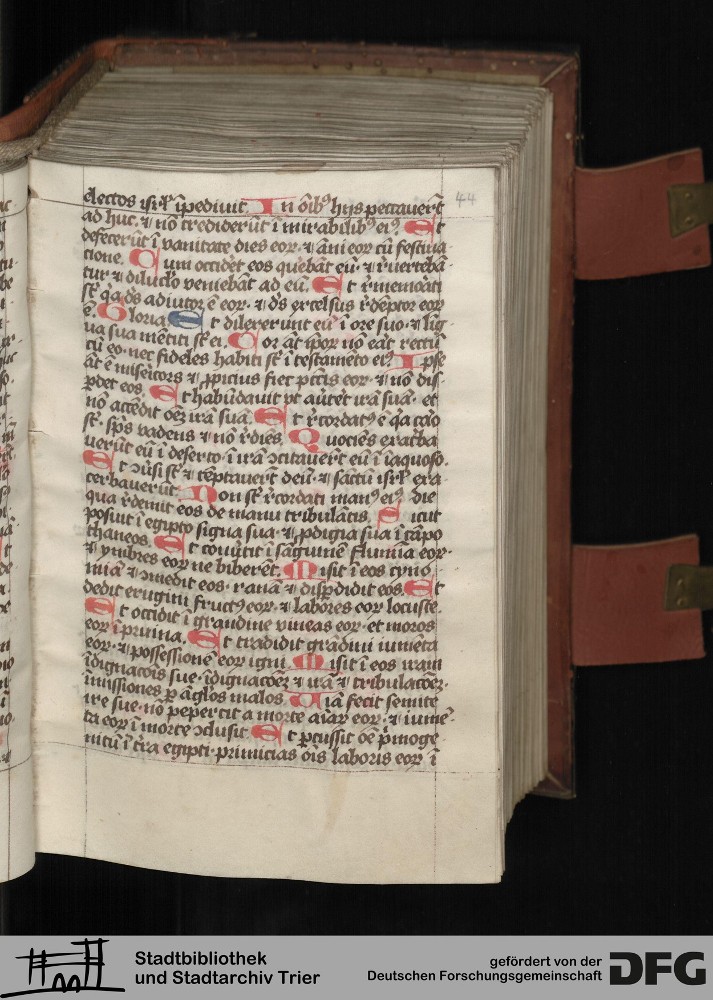 44
electos isrl' īpediuit In oīb⁹ hijs peccauer̄t
ad huc · ⁊ nō crediderūt ī mirabilib⁹ ei⁹. Et
defecerūt ī vanitate dies eoꝝ · ⁊ āni eoꝝ cū festina-
cione. Cum occideꝫ eos querebāt eū · ⁊ r̄uertebā-
tur ⁊ diluclo veniebāt ad eū. Et r̄memorati
st̄ q̄a ds̄ adiutor ē eoꝝ · ⁊ ds̄ excelsus r̄demptor eoꝝ
ē. Gloria. Et dilexerunt eū ī ore suo · ⁊ līg-
ua sua mētiti st̄ ei. Cor aūt ip̄oꝝ nō erāt rectū
cū eo · nec fideles habiti st̄ ī testamēto ei⁹. Ipse
āt ē misericors ⁊ ꝓpicius fiet pctīs eoꝝ · ⁊ nō dis-
ꝑdet eos. Et habūdauit vt au̇teret irā suā · et
nō accēdit oēꝫ irā suā. Et r̄cordat⁹ ē q̄a caro
st̄ · sp̄s vadens ⁊ nō r̄dies. Quociēs exacerba-
uerūt eū ī deserto · ī irā ↄcitauer̄t eū ī īaquoso.
Et ↄūsi st̄ ⁊ tēptauer̄t deū · ⁊ sāctū isrl' exa
cerbauerūt. Non st̄ r̄cordati man⁹ ei⁹ die
qua r̄demit eos de manu tribulātis. Sicut
posuit ī egipto signa sua · ⁊ ꝓdigia sua ī cāpo
thaneos. Et conuertit ī sāguinē flumia eoꝝ ·
⁊ ymbres eoꝝ ne biberēt. Misit ī eos cyno
miā ⁊ ↄmedit eos · ranā ⁊ disꝑdidit eos. Et
dedit erugini fruct⁹ eoꝝ · ⁊ labores eoꝝ locuste.
Et occidit ī grandine vineas eoꝝ · et moros
eoꝝ ī pruina. Et tradidit grādini iumēta
eoꝝ · ⁊ possessionē eoꝝ igni. Misit ī eos iram
īdignacōis sue · īdignacōeꝫ ⁊ irā ⁊ tribulacōeꝫ ·
īmissiones ꝑ āglos malos. Viā fecit semite
ire sue · nō pepercit a morte aīaꝝ eoꝝ · ⁊ iumē-
ta eoꝝ ī morte ↄclusit. Et ꝑcussit oē p̄moge
nitū ī t̄ra egipti · primicias oīs laboris eoꝝ ī
Stadtbibliothek
und Stadtarchiv Trier
gefördert von der
Deutschen Forschungsgemeinschaft
DFG